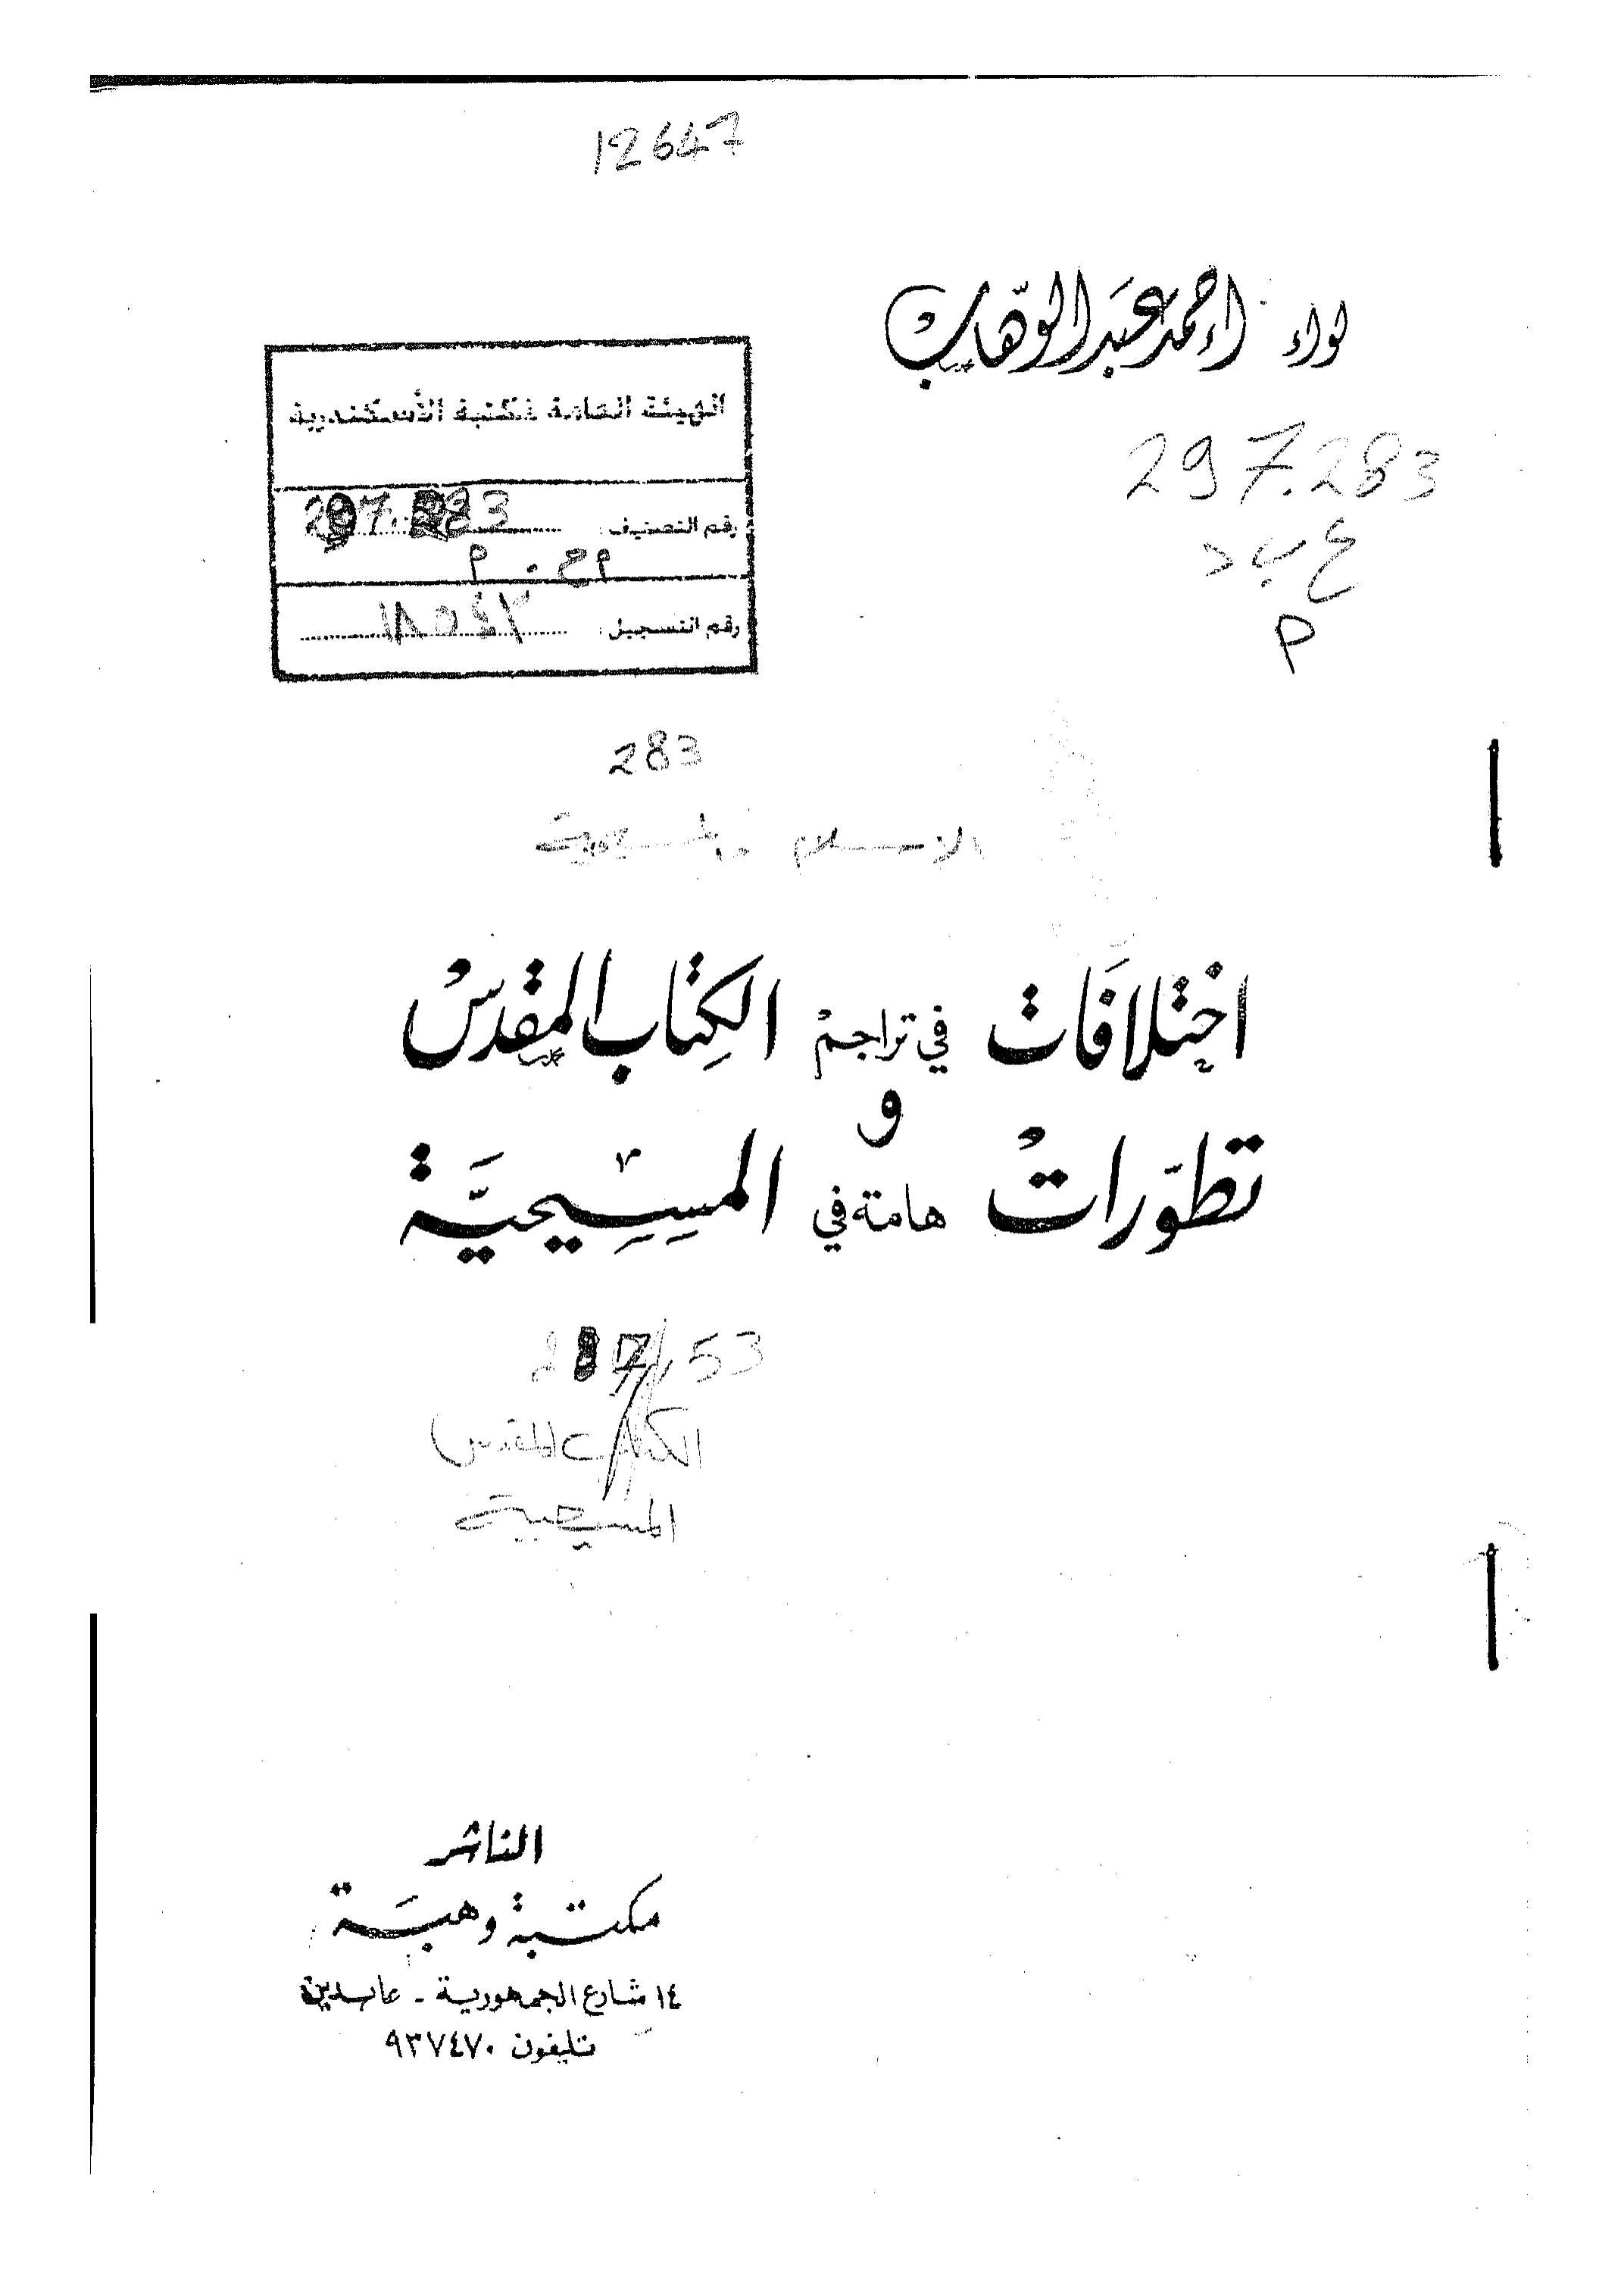 12647
لواء احمد عبد الوهاب
الهيئة العامة لمكتبة الأسكندرية
رقم التصنيف: 297.283
رقم التسجيل:
297.283
ع ب د
م
283
الإسلام والمسيحية
اختلافات في تراجم الكتاب المقدس
و
تطورات هامة في المسيحية
53
الكتاب المقدس
المسيحية
الناشر
مكتبة وهبة
١٤ شارع الجمهورية - عابدين
تليفون ٩٣٧٤٧٠